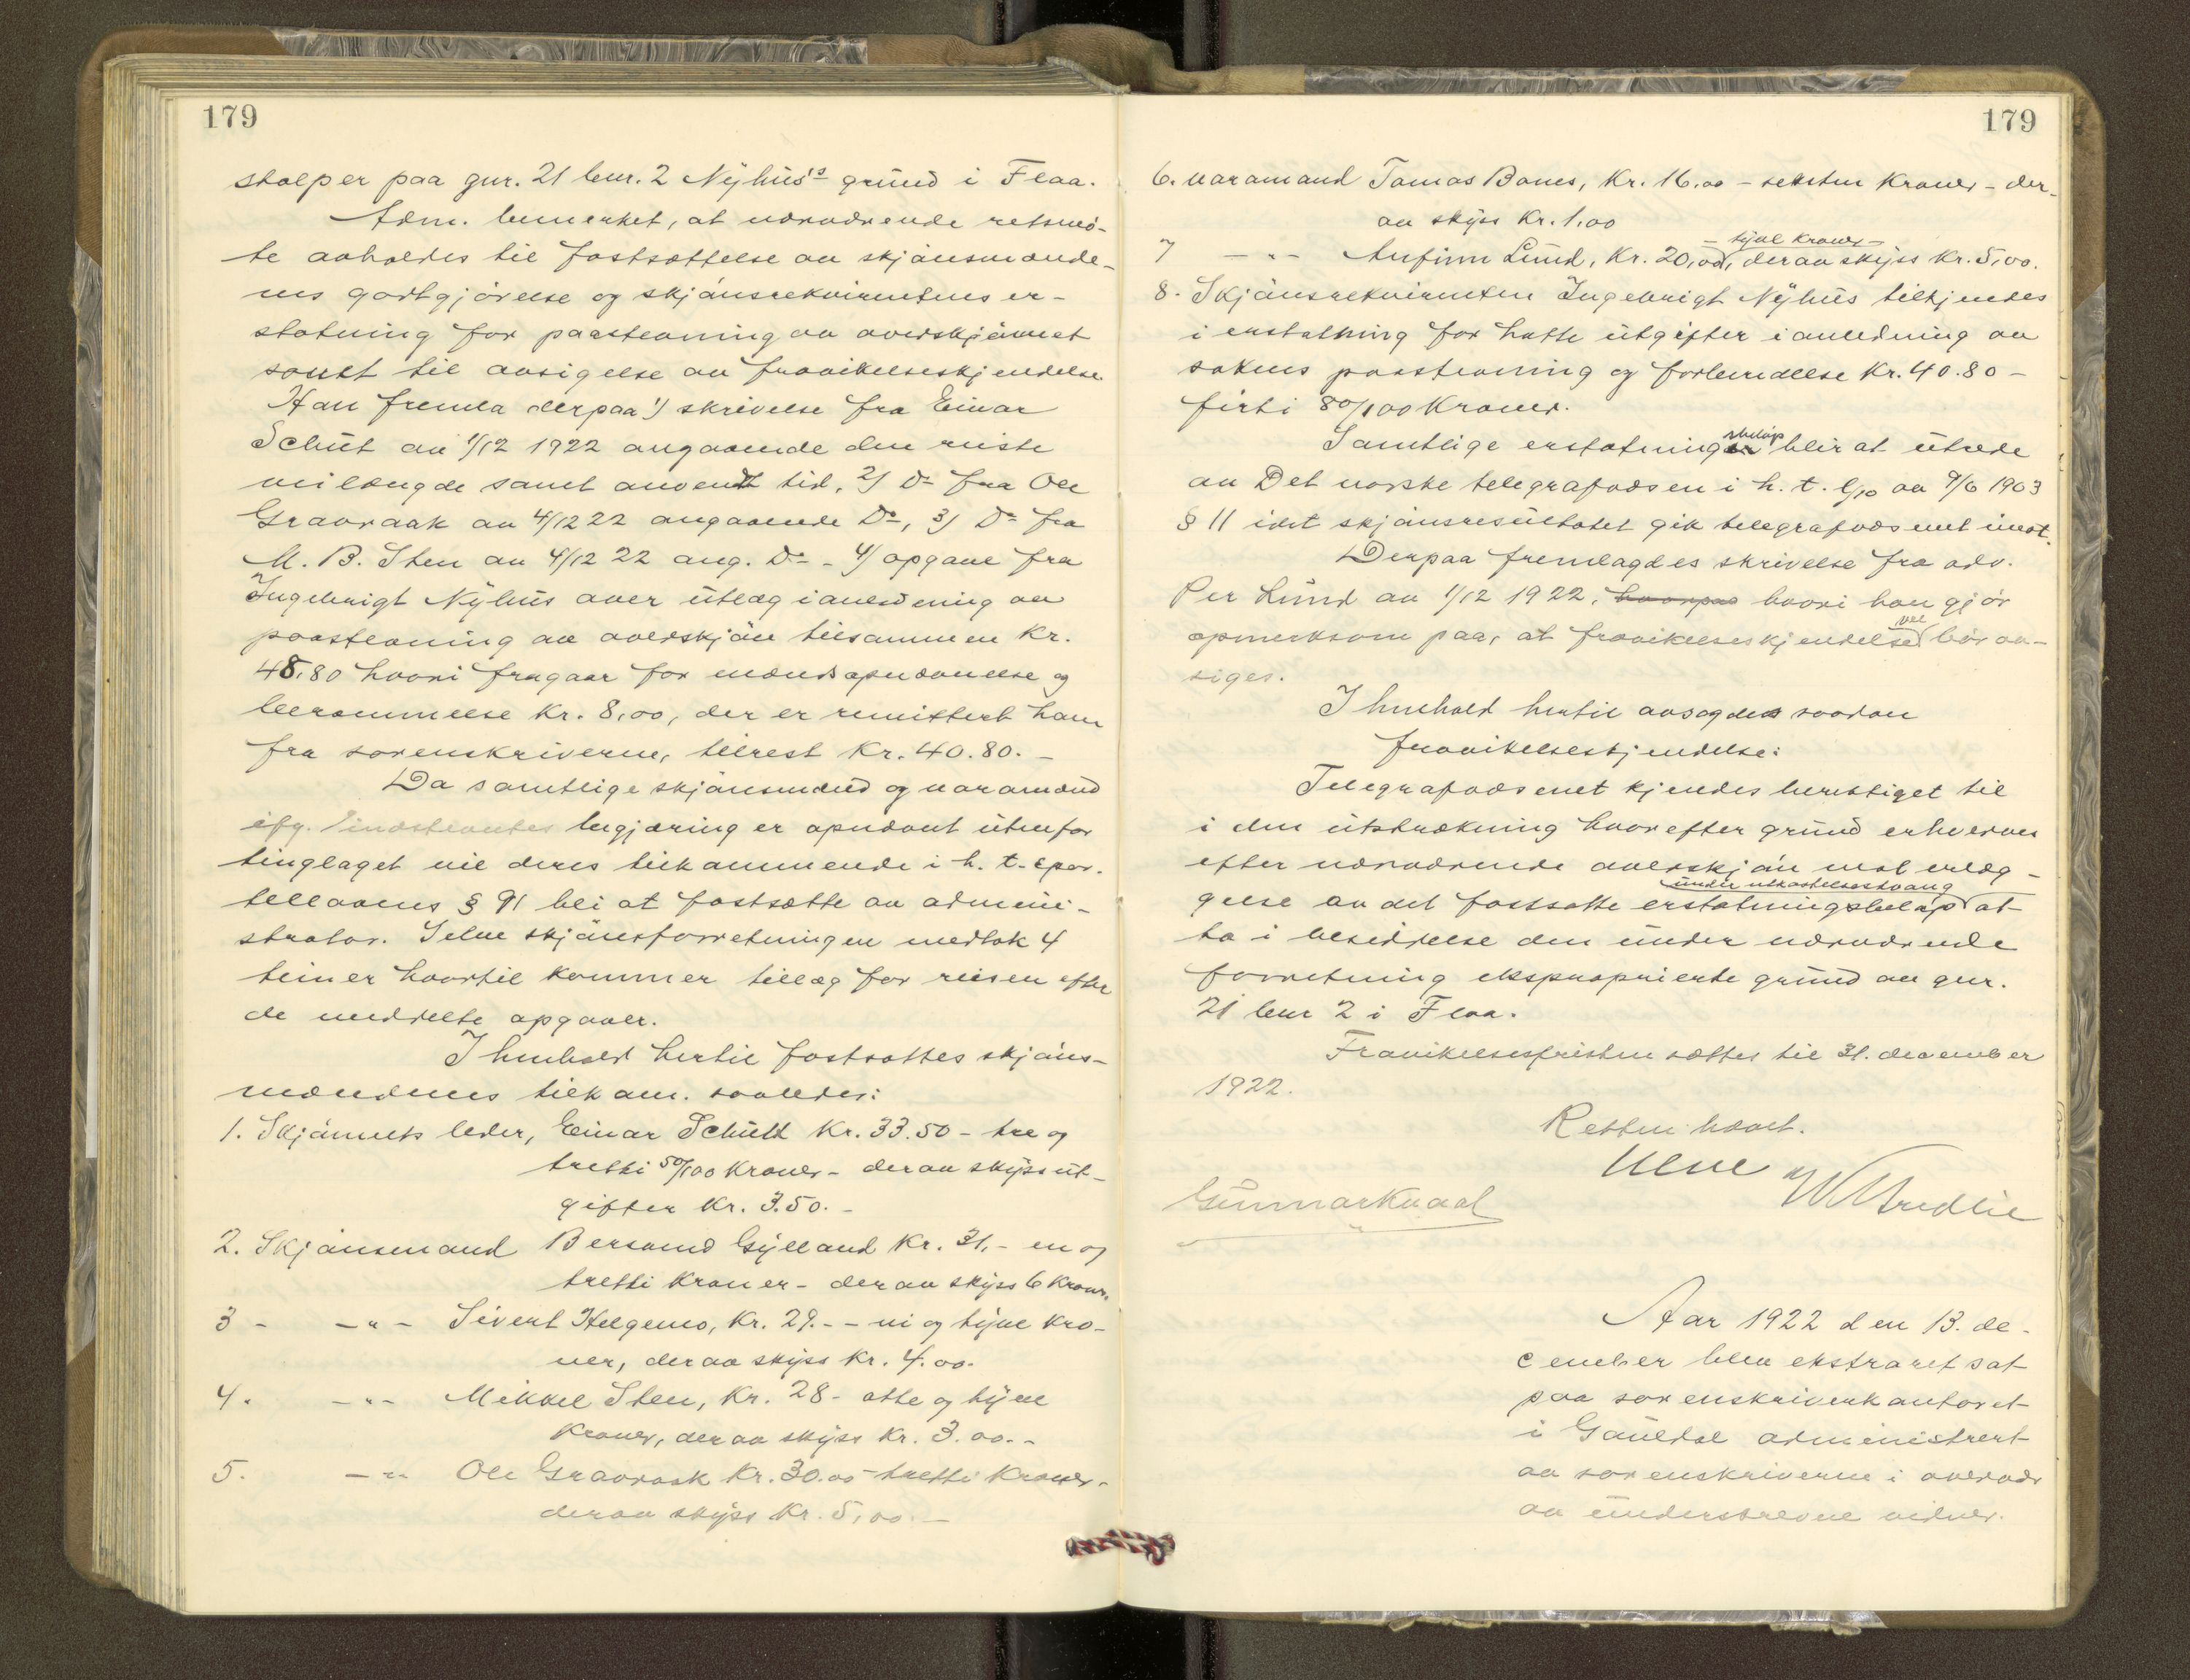 179
stolper paa gnr. 21 bnr. 2 Nyhus's grund i Flaa.
Adm. bemerket, at nærværende retsmö-
te avholdes til fastsættelse av skjönsmænde-
nes godtgjörelse og skjönsrekvirentens er-
statning for paastevning av overskjönnet
samt til avsigelse av fravikelseskjendelse.
Han fremla derpaa 1) skrivelse fra Einar
Schult av 1/12 1922 angaaende den reiste
veilængde samt anvendt tid, 2) Do fra Ole
Gravraak av 4/12 22 angaaende Do, 3) Do fra
M. B. Sten av 4/12 22 ang. Do - 4) opgave fra
Ingebrigt Nyhus over utlæg i anledning av
paastevning av overskjön tilsammen Kr.
48.80 hvori fragaar for mændsopnævnelse og
berammelse Kr. 8,00, der er remittert ham
fra sorenskriveren, tilrest Kr. 40.80. -
Da samtlige skjönsmænd og varamænd
ifg. indstevntes begjæring er opnævnt utenfor
tinglaget vil deres tilkommende i h. t. spor-
tellovens § 91 bli at fastsætte av admini-
strator. Selve skjönsforretningen medtok 4
timer hvortil kommer tillæg for reisen efter
de meddelte opgaver.
I henhold hertil fastsattes skjöns-
mændenes tilkom. saaledes:
1. Skjönnets leder, Einar Schult Kr. 33.50 - tre og
tretti 50/100 Kroner - derav skyssut-
gifter Kr. 3.50. -
2. Skjönsmand Bersvend Gylland Kr. 31,- en og
tretti Kroner - derav skyss 6 Kroner.
3 - -"- Sivert Helgemo, Kr. 29.- - ni og tyve Kro-
ner, derav skyss Kr. 4.00.
4. -"- Mikkel Sten, Kr. 28 - otte og tyve
Kroner, derav skyss Kr. 3.00. -
5. -"- Ole Gravraak Kr. 30.00 - tretti Kroner -
derav skyss Kr. 5,00. -
179
6. varamand Tomas Bones, Kr. 16,00 - seksten Kroner - der-
av skyss Kr. 1,00
- tyve Kroner -
7 -"- Anfinn Lund, Kr. 20,00, derav skyss Kr. 5,00.
8. Skjönsrekvirenten Ingebrigt Nyhus tilkjendes
i erstatning for hatte utgifter i anledning av
sakens paastevning og forberedelse Kr. 40.80 -
firti 80/100 Kroner.
Samtlige erstatningsbelöp blir at utrede
av Det norske telegrafvæsen i h. t. l/10 av 9/6 1903
§ 11 idet skjönsresultatet gik telegrafvæsenet imot.
Derpaa fremlagdes skrivelse fra adv.
Per Lund av 1/12 1922, hvorpaa hvori han gjör
opmerksom paa, at fravikelseskjendelse vil bör av-
siges.
I henhold hertil avsagdes saadan
fravikelseskjendelse:
Telegrafvæsenet kjendes berettiget til
i den utstrækning hvorefter grund erhverves
efter nærværende overskjön mot erlæg-
under utkastelsestvang
gelse av det fastsatte erstatningsbelöp at
ta i besiddelse den under nærværende
forretning eksproprierte grund av gnr.
21 bnr 2 i Flaa.
Fravikelsesfristen sættes til 31. december
1922.
Retten hævet.
Gunnar Kvaal
Aar 1922 den 13. de-
cember blev ekstraret sat
paa sorenskriverkontoret
i Gauldal administrert
av sorenskriveren i overvær
av understrevne vidner.